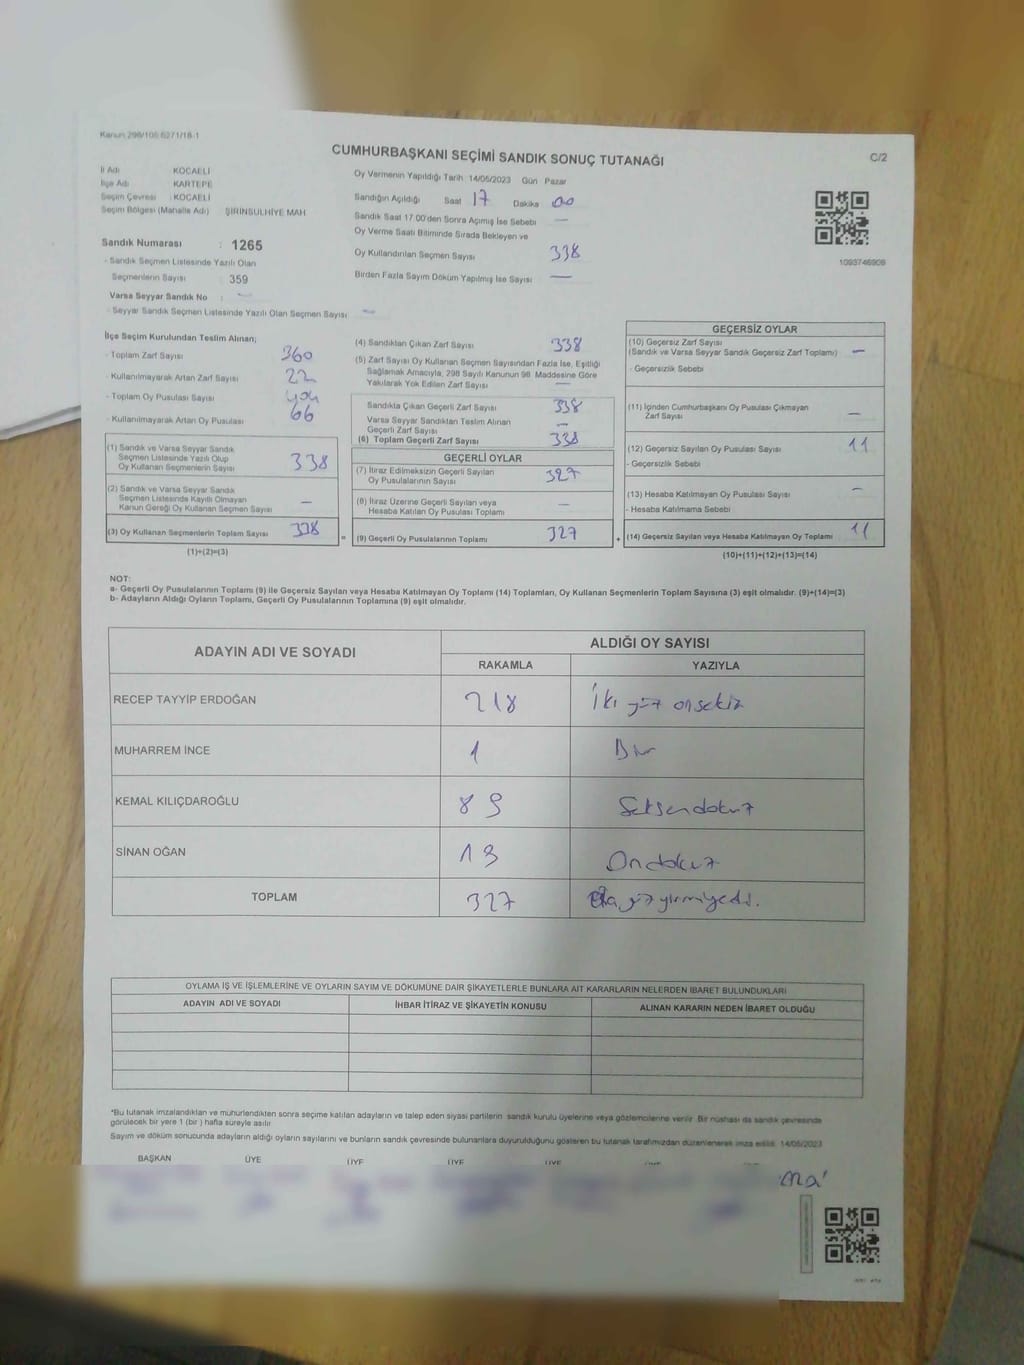 Kanun 298/105 6271/18-1
CUMHURBAŞKANI SEÇİMİ SANDIK SONUÇ TUTANAĞI
C/2
İl Adı KOCAELİ
İlçe Adı KARTEPE
Seçim Çevresi KOCAELİ
Seçim Bölgesi (Mahalle Adı) ŞİRİNSULHİYE MAH.
Sandık Numarası : 1265
- Sandık Seçmen Listesinde Yazılı Olan
Seçmenlerin Sayısı 359
Varsa Seyyar Sandık No : —
- Seyyar Sandık Seçmen Listesinde Yazılı Olan Seçmen Sayısı —
Oy Vermenin Yapıldığı Tarih 14/05/2023 Gün Pazar
Sandığın Açıldığı Saat 17 Dakika 00
Sandık Saat 17.00'den Sonra Açılmış İse Sebebi —
Oy Verme Saati Bitiminde Sırada Bekleyen ve
Oy Kullandırılan Seçmen Sayısı 338
Birden Fazla Sayım Döküm Yapılmış İse Sayısı —
1093746909
İlçe Seçim Kurulundan Teslim Alınan;
- Toplam Zarf Sayısı 360
- Kullanılmayarak Artan Zarf Sayısı 22
- Toplam Oy Pusulası Sayısı 404
- Kullanılmayarak Artan Oy Pusulası 66
(1) Sandık ve Varsa Seyyar Sandık
Seçmen Listesinde Yazılı Olup
Oy Kullanan Seçmenlerin Sayısı 338
(2) Sandık ve Varsa Seyyar Sandık
Seçmen Listesinde Kayıtlı Olmayan
Kanun Gereği Oy Kullanan Seçmen Sayısı —
(3) Oy Kullanan Seçmenlerin Toplam Sayısı 338
(1)+(2)=(3)
(4) Sandıktan Çıkan Zarf Sayısı 338
(5) Zarf Sayısı Oy Kullanan Seçmen Sayısından Fazla İse, Eşitliği
Sağlamak Amacıyla, 298 Sayılı Kanunun 98. Maddesine Göre
Yakılarak Yok Edilen Zarf Sayısı —
Sandıkta Çıkan Geçerli Zarf Sayısı 338
Varsa Seyyar Sandıktan Teslim Alınan
Geçerli Zarf Sayısı —
(6) Toplam Geçerli Zarf Sayısı 338
GEÇERLİ OYLAR
(7) İtiraz Edilmeksizin Geçerli Sayılan
Oy Pusulalarının Sayısı 327
(8) İtiraz Üzerine Geçerli Sayılan veya
Hesaba Katılan Oy Pusulası Toplamı —
= (9) Geçerli Oy Pusulalarının Toplamı 327
GEÇERSİZ OYLAR
(10) Geçersiz Zarf Sayısı
(Sandık ve Varsa Seyyar Sandık Geçersiz Zarf Toplamı) —
- Geçersizlik Sebebi
(11) İçinden Cumhurbaşkanı Oy Pusulası Çıkmayan
Zarf Sayısı —
(12) Geçersiz Sayılan Oy Pusulası Sayısı 11
- Geçersizlik Sebebi
(13) Hesaba Katılmayan Oy Pusulası Sayısı —
- Hesaba Katılmama Sebebi
+ (14) Geçersiz Sayılan veya Hesaba Katılmayan Oy Toplamı 11
(10)+(11)+(12)+(13)=(14)
NOT:
a- Geçerli Oy Pusulalarının Toplamı (9) ile Geçersiz Sayılan veya Hesaba Katılmayan Oy Toplamı (14) Toplamları, Oy Kullanan Seçmenlerin Toplam Sayısına (3) eşit olmalıdır. (9)+(14)=(3)
b- Adayların Aldığı Oyların Toplamı, Geçerli Oy Pusulalarının Toplamına (9) eşit olmalıdır.
ADAYIN ADI VE SOYADI
ALDIĞI OY SAYISI
RAKAMLA YAZIYLA
RECEP TAYYİP ERDOĞAN 218 İki yüz onsekiz
MUHARREM İNCE 1 Bir
KEMAL KILIÇDAROĞLU 89 Seksendokuz
SİNAN OĞAN 19 Ondokuz
TOPLAM 327 yüz yirmiyedi.
OYLAMA İŞ VE İŞLEMLERİNE VE OYLARIN SAYIM VE DÖKÜMÜNE DAİR ŞİKAYETLERLE BUNLARA AİT KARARLARIN NELERDEN İBARET BULUNDUKLARI
ADAYIN ADI VE SOYADI İHBAR İTİRAZ VE ŞİKAYETİN KONUSU ALINAN KARARIN NEDEN İBARET OLDUĞU
*Bu tutanak imzalandıktan ve mühürlendikten sonra seçime katılan adayların ve talep eden siyasi partilerin sandık kurulu üyelerine veya gözlemcilerine verilir. Bir nüshası da sandık çevresinde
görülecek bir yere 1 (bir) hafta süreyle asılır.
Sayım ve döküm sonucunda adayların aldığı oyların sayılarını ve bunların sandık çevresinde bulunanlara duyurulduğunu gösteren bu tutanak tarafımızdan düzenlenerek imza edildi. 14/05/2023
BAŞKAN ÜYE ÜYE ÜYE ÜYE